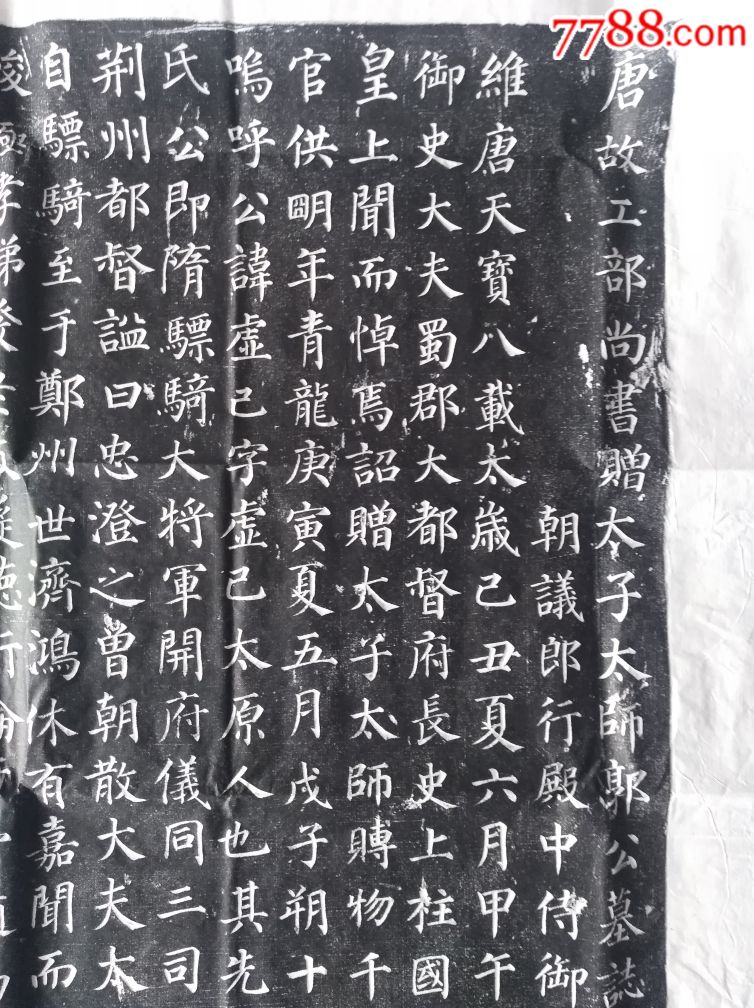 7788.com
唐故工部尚書贈太子太師郭公墓誌
朝議郎行殿中侍御
維唐天寶八載太歲己丑夏六月甲午
御史大夫蜀郡大都督府長史上柱國
皇上聞而悼焉詔贈太子太師賻物千
官供明年青龍庚寅夏五月戊子朔十
嗚呼公諱虛己字虛己太原人也其先
氏公即隋驃騎大將軍開府儀同三司
荊州都督謚曰忠澄之曾朝散大夫太
自驃騎至于鄭州世濟鴻休有嘉聞而